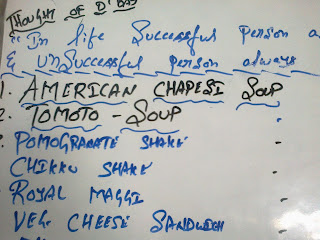 THOUGHT OF D' DAY
"In life Successful Person a
& unSuccessful person always
1. AMERICAN CHAPESI SOUP
2. TOMOTO - SOUP
POMOGRANATE SHAKE
CHIKKU SHAKE
ROYAL MAGGI
VEG. CHEESE SANDWICH